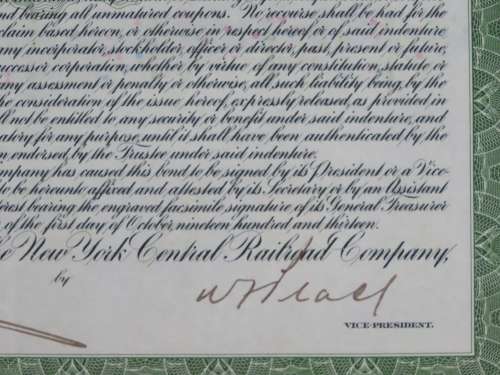 nd bearing all unmatured coupons. No recourse shall be had for the
claim based hereon, or otherwise in respect hereof, or of said indenture
any incorporator, stockholder, officer or director, past, present or future,
uccessor corporation, whether by virtue of any constitution, statute or
any assessment or penalty or otherwise, all such liability being, by the
the consideration of the issue hereof, expressly released, as provided in
ll not be entitled to any security or benefit under said indenture, and
atory for any purpose, until it shall have been authenticated by the
n endorsed by the Trustee under said indenture.
ompany has caused this bond to be signed by its President or a Vice-
to be hereunto affixed and attested by its Secretary or by an Assistant
erest bearing the engraved facsimile signature of its General Treasurer
of the first day of October, nineteen hundred and thirteen.
he New York Central Railroad Company,
by
VICE-PRESIDENT.